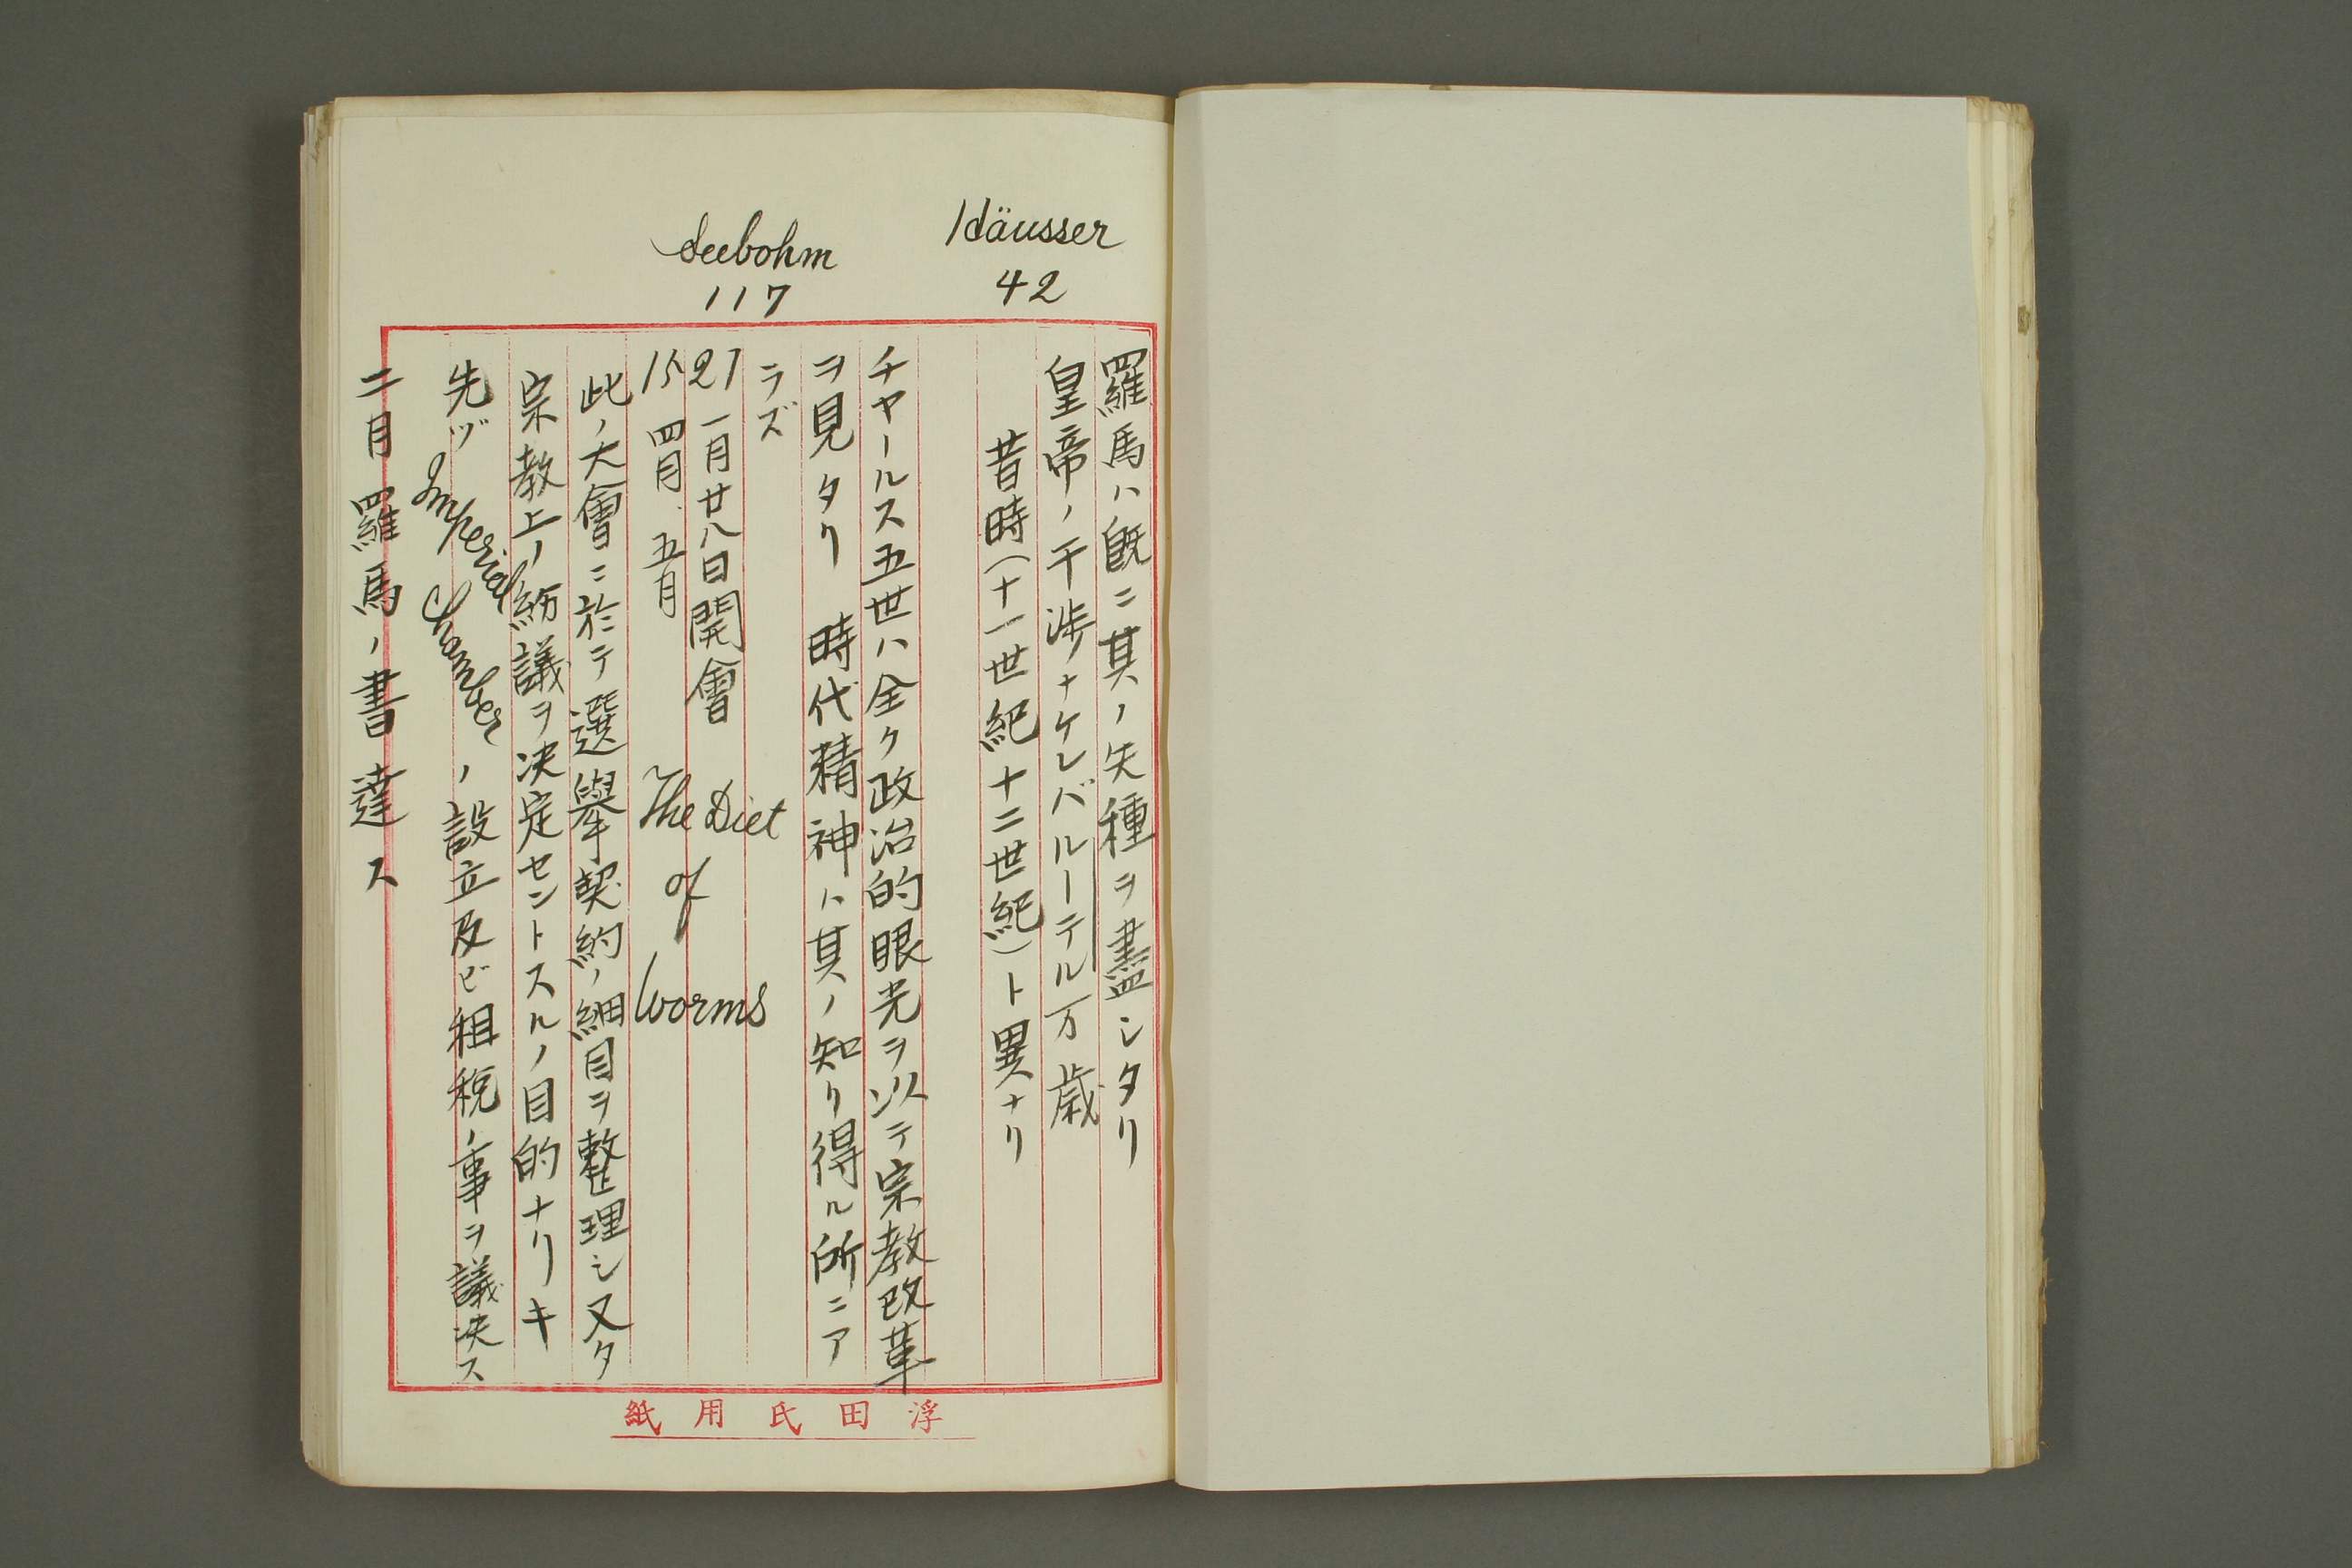 Häusser
42
羅馬ハ既ニ其ノ矢種ヲ盡シタリ
皇帝ノ干渉ナケレバルーテル万歳
昔時(十一世紀十二世紀)ト異ナリ
チャールス五世ハ全ク政治的眼光ヲ以テ宗教改革
ヲ見タリ 時代精神ハ其ノ知リ得ル所ニア
ラズ
Seebohm
117
1521
一月廿八日開會
四月、五月
The Diet
of
Worms
此ノ大會ニ於テ選擧契約ノ細目ヲ整理シ又タ
宗教上ノ紛議ヲ决定セントスルノ目的ナリキ
先ヅ Imperial Chamber ノ設立及ビ租税ノ事ヲ議决ス
二月 羅馬ノ書達ス
浮田氏用紙